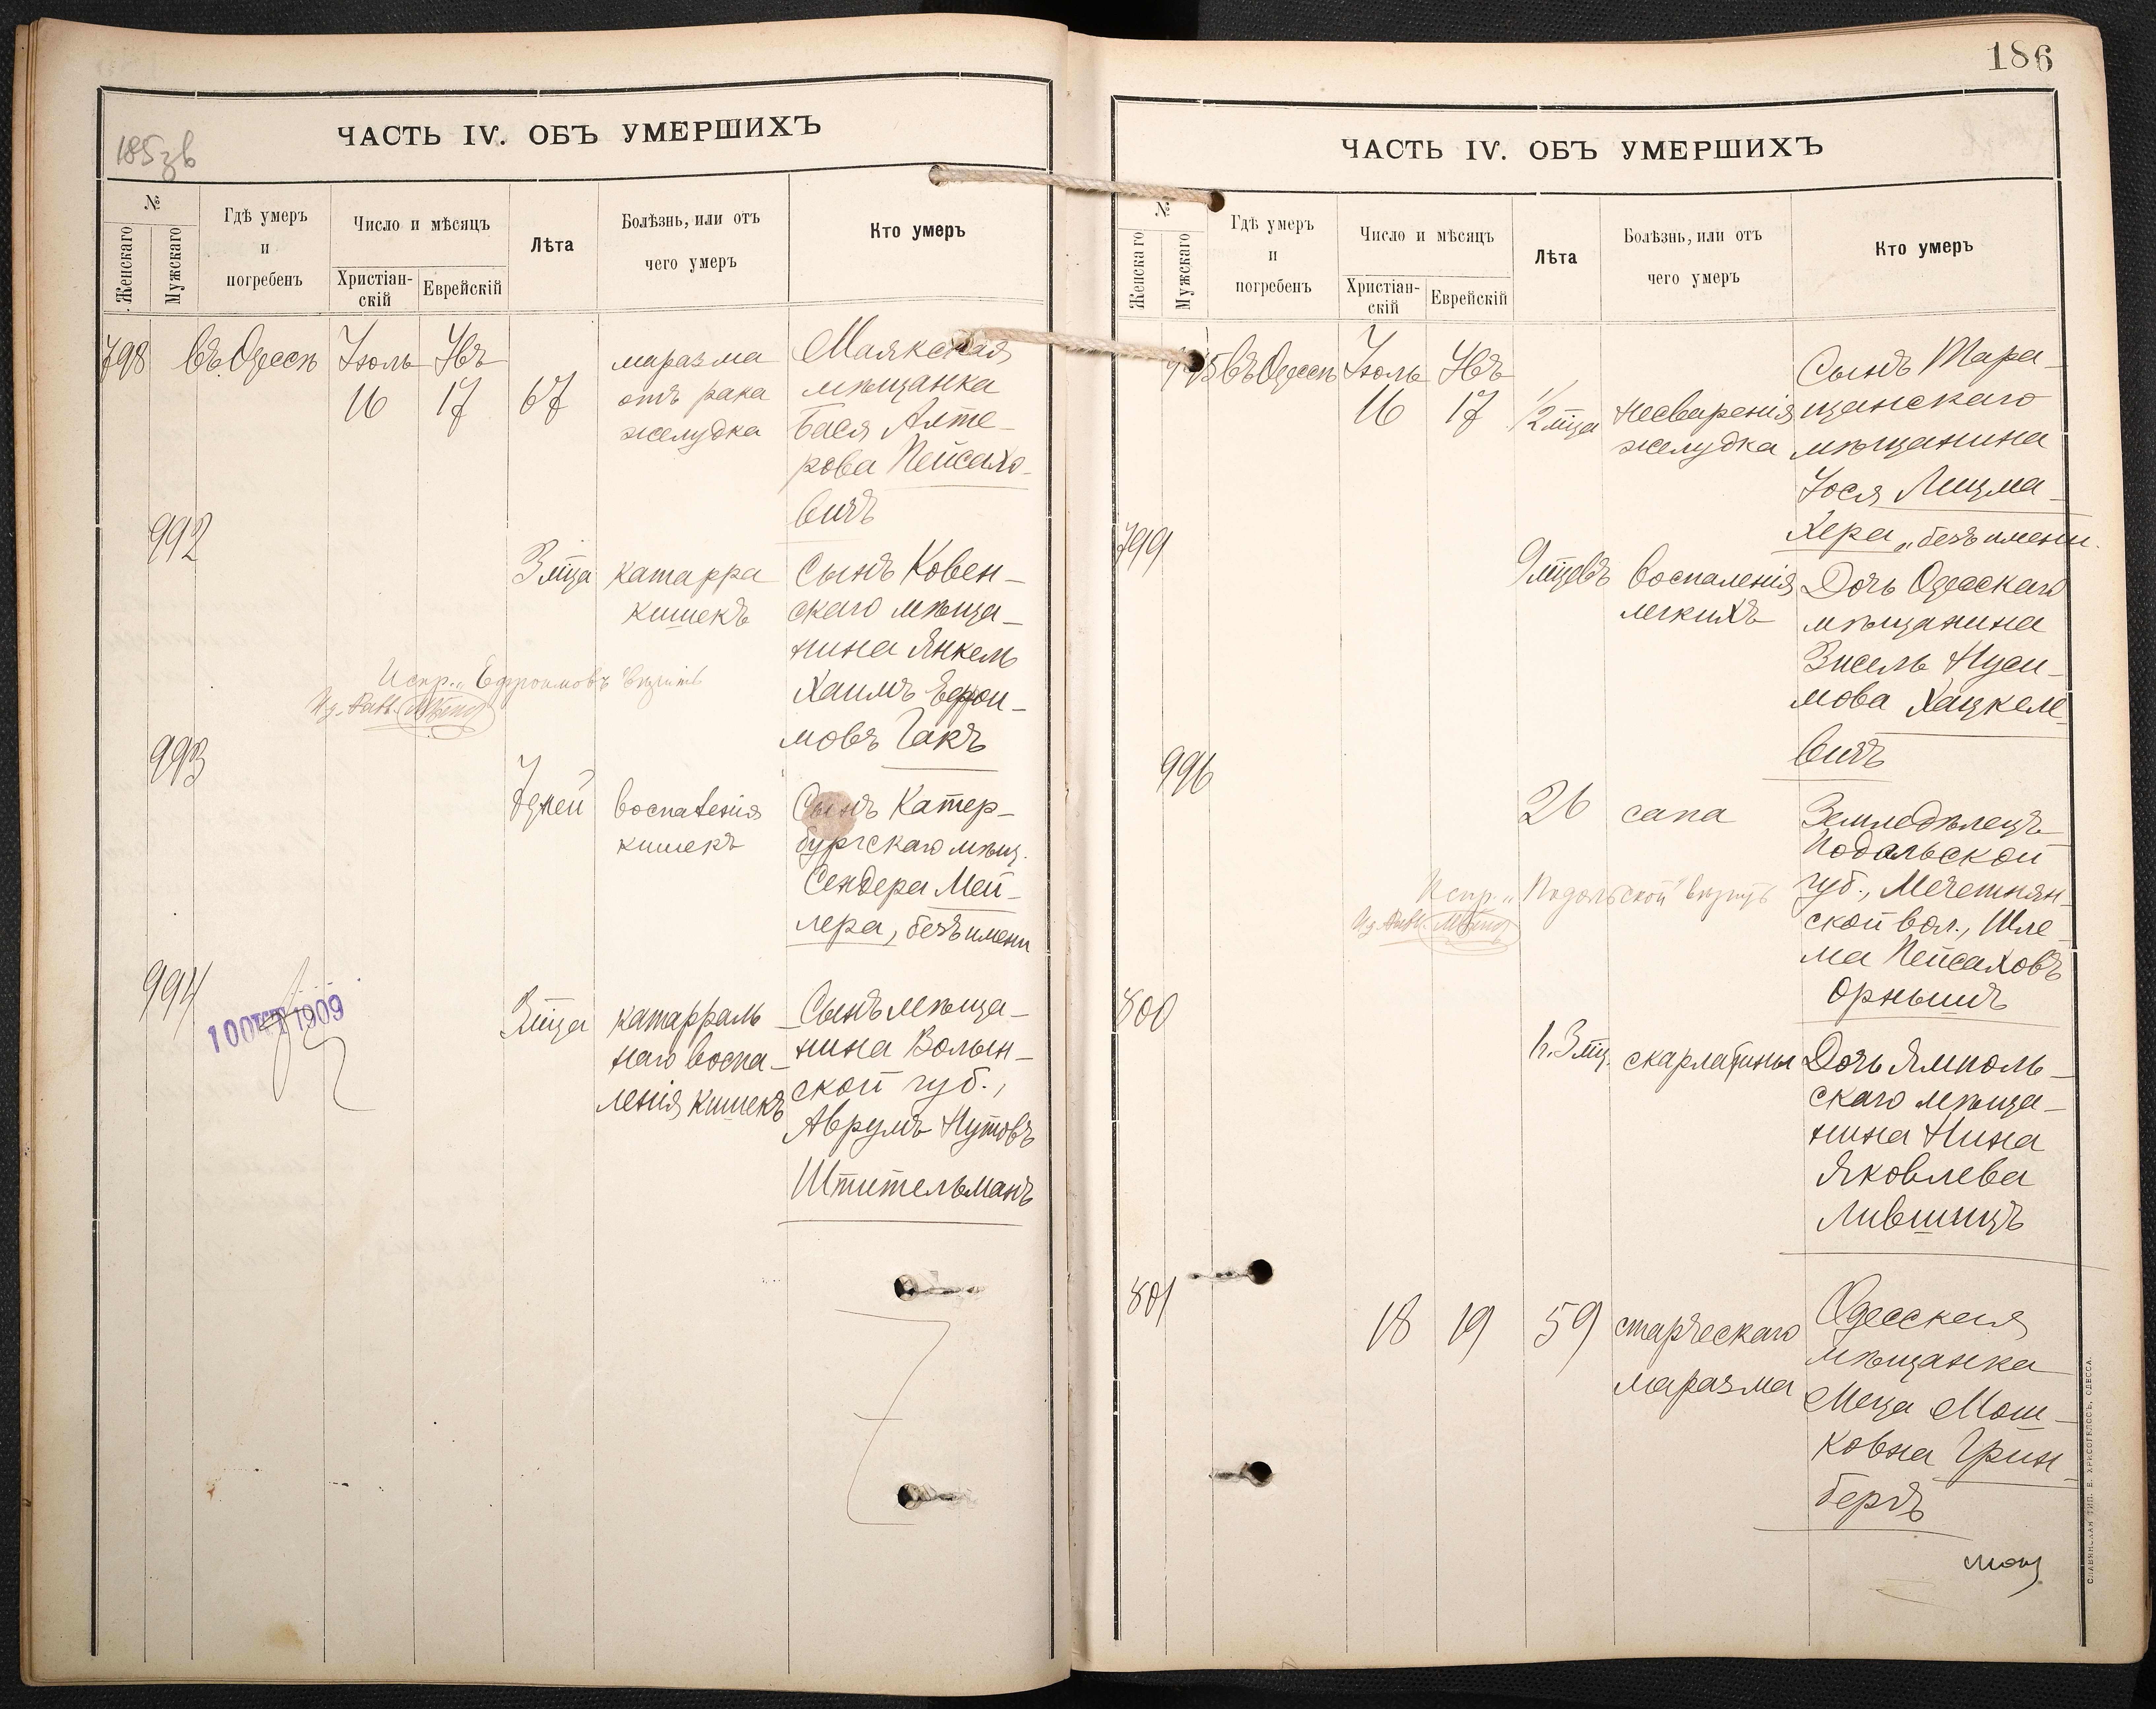 185 зв
ЧАСТЬ IV. ОБЪ УМЕРШИХЪ
№
Женскаго
Мужскаго
Гдѣ умеръ
и
погребенъ
Число и мѣсяцъ
Христіан-
скій
Еврейскій
Лѣта
Болѣзнь, или отъ
чего умеръ
Кто умеръ
798
въ Одессѣ
Іюль
16
Явъ
17
67
маразма
отъ рака
желудка
Маякская
мѣщанка
Бася Алте-
рова Пейсахо-
вичъ
992
3 мѣца
катарра
кишекъ
Сынъ Ковен-
скаго мѣща-
нина Янкель
Хаимъ Ефрои-
мовъ Гакъ
Испр. „Ефроимовъ" вѣрить
993
7 дней
воспаленія
кишекъ
Сынъ Катер-
бургскаго мѣщ.
Сендера Мей-
лера, безъ имени
994
10 ОКТ 1909
3 мѣца
катарраль-
наго воспа-
ленія кишекъ
Сынъ мѣща-
нина Волын-
ской губ.,
Аврумъ Нутовъ
Штительманъ
186
ЧАСТЬ IV. ОБЪ УМЕРШИХЪ
№
Женскаго
Мужскаго
Гдѣ умеръ
и
погребенъ
Число и мѣсяцъ
Христіан-
скій
Еврейскій
Лѣта
Болѣзнь, или отъ
чего умеръ
Кто умеръ
995
въ Одессѣ
Іюль
16
Явъ
17
1/2 мѣца
несваренія
желудка
Сынъ Тара-
щанскаго
мѣщанина
Іося Лицма-
хера „безъ имени
799
9 мѣцевъ
воспаленія
легкихъ
Дочь Одесскаго
мѣщанина
Зисель Нуси-
мова Хацкеле-
вичъ
996
26
сапа
Земледѣлецъ
Подольской
губ., Мечетнян-
ской вол., Шле-
ма Пейсаховъ
Орнышъ
Испр. „Подольской" вѣрить
800
1 г. 3 мц.
скарлатины
Дочь Ямполь-
скаго мѣща-
нина Нина
Яковлева
Лившицъ
801
18
19
59
старческаго
маразма
Одесская
мѣщанка
Меца Мош-
ковна Грин-
бергъ
СЛАВЯНСКАЯ ТИП. Е. ХРИСОГЕЛОСЪ, ОДЕССА.